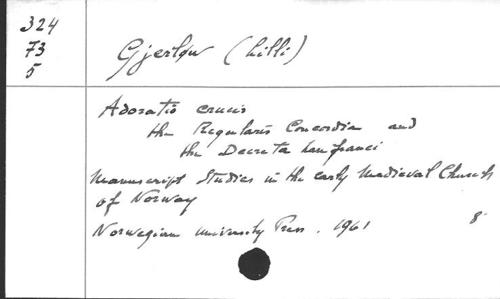 324
73
5
Gjerløw (Lilli)
Adoratio crucis
the Regularis Concordia and
the Decreta Lanfranci
Manuscript Studies in the early Medieval Church
of Norway
Norwegian University Press. 1961 8°